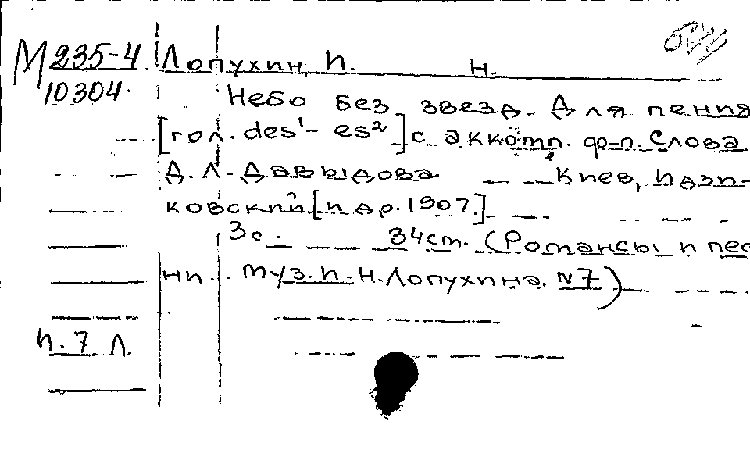 М 235-4 Лопухин, П. Н.
10304.
Небо без звезд. Для пения
[гол. des¹- es²] с аккомп. ф-п. Слова
Д. Л. Давыдова Киев, Идзи-
ковский [ц др. 1907.]
3 с. 34 cm. (Романсы и пес
ни. муз. П. Н. Лопухина. N7)
п. 7 Л.